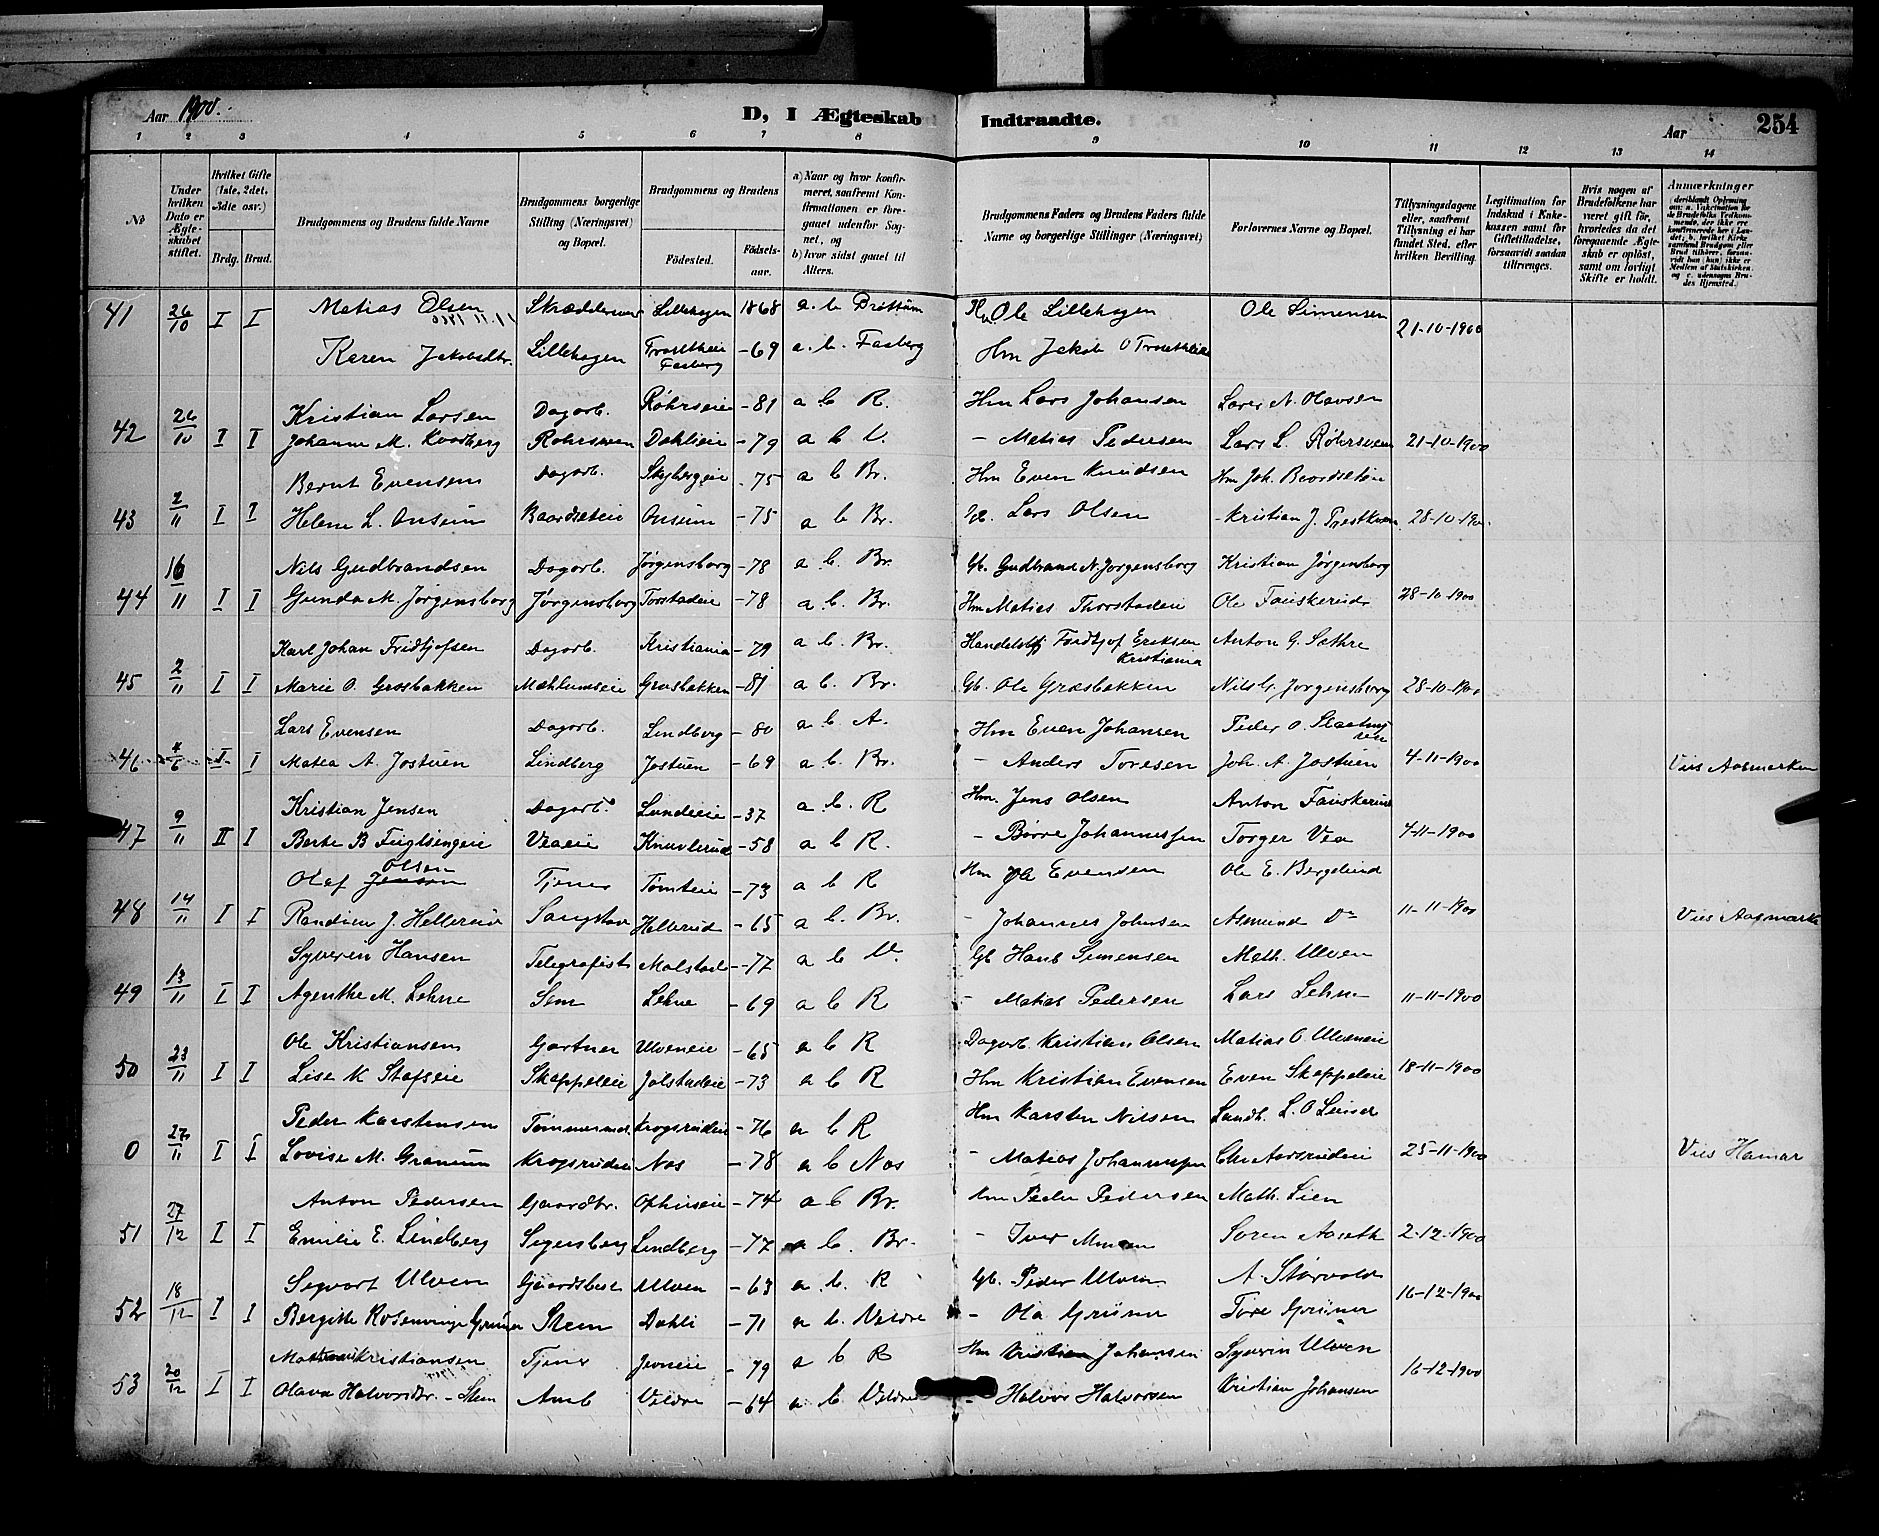 Aar 1900. D, I Ægteskab Indtraadte. Aar 254
1 2 3 4 5 6 7 8 9 10 11 12 13 14
No
Under hvilken Dato er Ægteskabet stiftet.
Hvilket Gifte (1ste, 2det, 3die osv.)
Brdg. Brud.
Brudgommens og Brudens fulde Navne
Brudgommens borgerlige Stilling (Næringsvei) og Bopæl.
Brudgommens og Brudens
Fødested. Fødselsaar.
a) Naar og hvor konfirmeret, saafremt Konfirmationen er foregaaet udenfor Sognet, og
b) hvor sidst gaaet til Alters.
Brudgommens Faders og Brudens Faders fulde Navne og borgerlige Stillinger (Næringsvei)
Forlovernes Navne og Bopæl.
Tillysningsdagene eller, saafremt Tillysning ei har fundet Sted, efter hvilken Bevilling.
Legitimation for Indskud i Enkekassen samt for Giftetilladelse, forsaavidt saadan tiltrænges.
Hvis nogen af Brudefolkene har været gift før, hvorledes da det foregaaende Ægteskab er opløst, samt om lovligt Skifte er holdt.
Anmærkninger
41 26/10 I I Matias Olsen Skræddersvend Lillehagen 1868 a. b. Brøttum Ole Lillehagen Ole Simensen 21-10-1900
Karen Jakobsdtr. Lillehagen Faaberg -69 a. b. Faaberg Hm Jakob O
42 26/10 I I Kristian Larsen Dagarb. Røhrseie -81 a b R. Hm Lars Johansen Lars N. Olavsen
Johanne M. Kvarberg Røhrsveen Dahlieie -79 a b V. - Matias Pedersen Lars L. Røhrsveen 21-10-1900
43 2/11 I I Bernt Evensen Dagarb. Skybergeie -75 a b Br. Hm Even Knudsen Hm Joh. Baardseteie
Helene L. Onsum Baardseteie Onsum -75 a b Br. Lars Olsen Kristian J. 28-10-1900
44 16/11 I I Nils Gudbrandsen Dagarb. Jørgensborg -78 a. b. Br. Gb. Gudbrand N. Jørgensborg Kristian Jørgensborg
Gunda M. Jørgensborg Jørgensborg Torstadeie -78 a b. Br. Hm Matias Thorstadeie Ole Fauskerud 28-10-1900
45 2/11 I I Karl Johan Fridtjofsen Dagarb. Kristiania -79 a b. Br. Fridtjof Eriksen Kristiania Anton G. Sethre
Marie O. Græsbakken Mæhlumseie Græsbakken -81 a b. Br. Gb. Ole Græsbakken Nils G. Jørgensborg 28-10-1900
46 I I Lars Evensen Dagarb. Lindberg -80 a b. A. Hm Even Johansen Peder O.
Matea A. Jostuen Lindberg Jostuen -69 a b. Br. - Anders Toresen Joh. A. Jostuen 4-11-1900 Vies Aasmarken
47 9/11 II I Kristian Jensen Dagarb. Lundeeie -37 a b. R Hm. Jens Olsen Anton Fauskerud
Berte B Fuglsengeie Veaeie Knuvlerud -58 a b R. - Børre Johannessen Torger Vea 4-11-1900
48 14/11 I I Olaf Olsen Tjener Tømteie -73 a b R Hm Ole Evensen Ole E. Berglund
Randine J. Hellerud Sangstad Hellerud -65 a b. Br. - Johannes Johnsen Asmund Do 11-11-1900 Vies Aasmark
49 13/11 I I Syverin Hansen Telegrafist Malstad -77 a b V. Gb Hans Simensen Math. Ulven
Agenthe M. Lehne Sem Lehne -69 a b R - Matias Pedersen Lars Lehne 11-11-1900
50 23/11 I I Ole Kristiansen Gartner Ulveneie -65 a b R Dagarb. Kristian Olsen Matias O. Ulveneie
Lise K Stafseie Skappeleie Jølstadeie -73 a b R Hm Kristian Evensen Even Skappeleie 18-11-1900
0 27/11 I I Peder Karstensen Tømmermd. Krogsrudeie -76 a b R Hm Karsten Nilsen Landh. L. O.
Lovise M. Granum Krogsrudeie Nes -78 a b Nes - Matias Johannessen Chr Aarsrudeie 25-11-1900 Vies Hamar
51 27/12 I I Anton Pedersen Gaardbr. Ophuseie -74 a b Br. Hm Peder Pedersen Math. Lien
Emilie E. Lindberg Segersberg Lindberg -77 a b. Br. - Iver Soren Aaseth 2-12-1900
52 18/12 I I Segvart Ulven Gaardsbest. Ulven -63 a. b. R Gb. Peder Ulven A. Størvold
Bergitte Rosenvinge Grüner Stem Dahli -71 a b. Veldre - Ola Grüner Tore Grüner 16-12-1900
53 20/12 I I Kristiansen Tjener Jevneie -79 a b R Hm Kristian Johansen Syverin Ulven 16-12-1900
Olava Halvorsdtr. - Stem Arnb Veldre -64 a b Veldre - Halvor Halvorsen Kristian Johansen